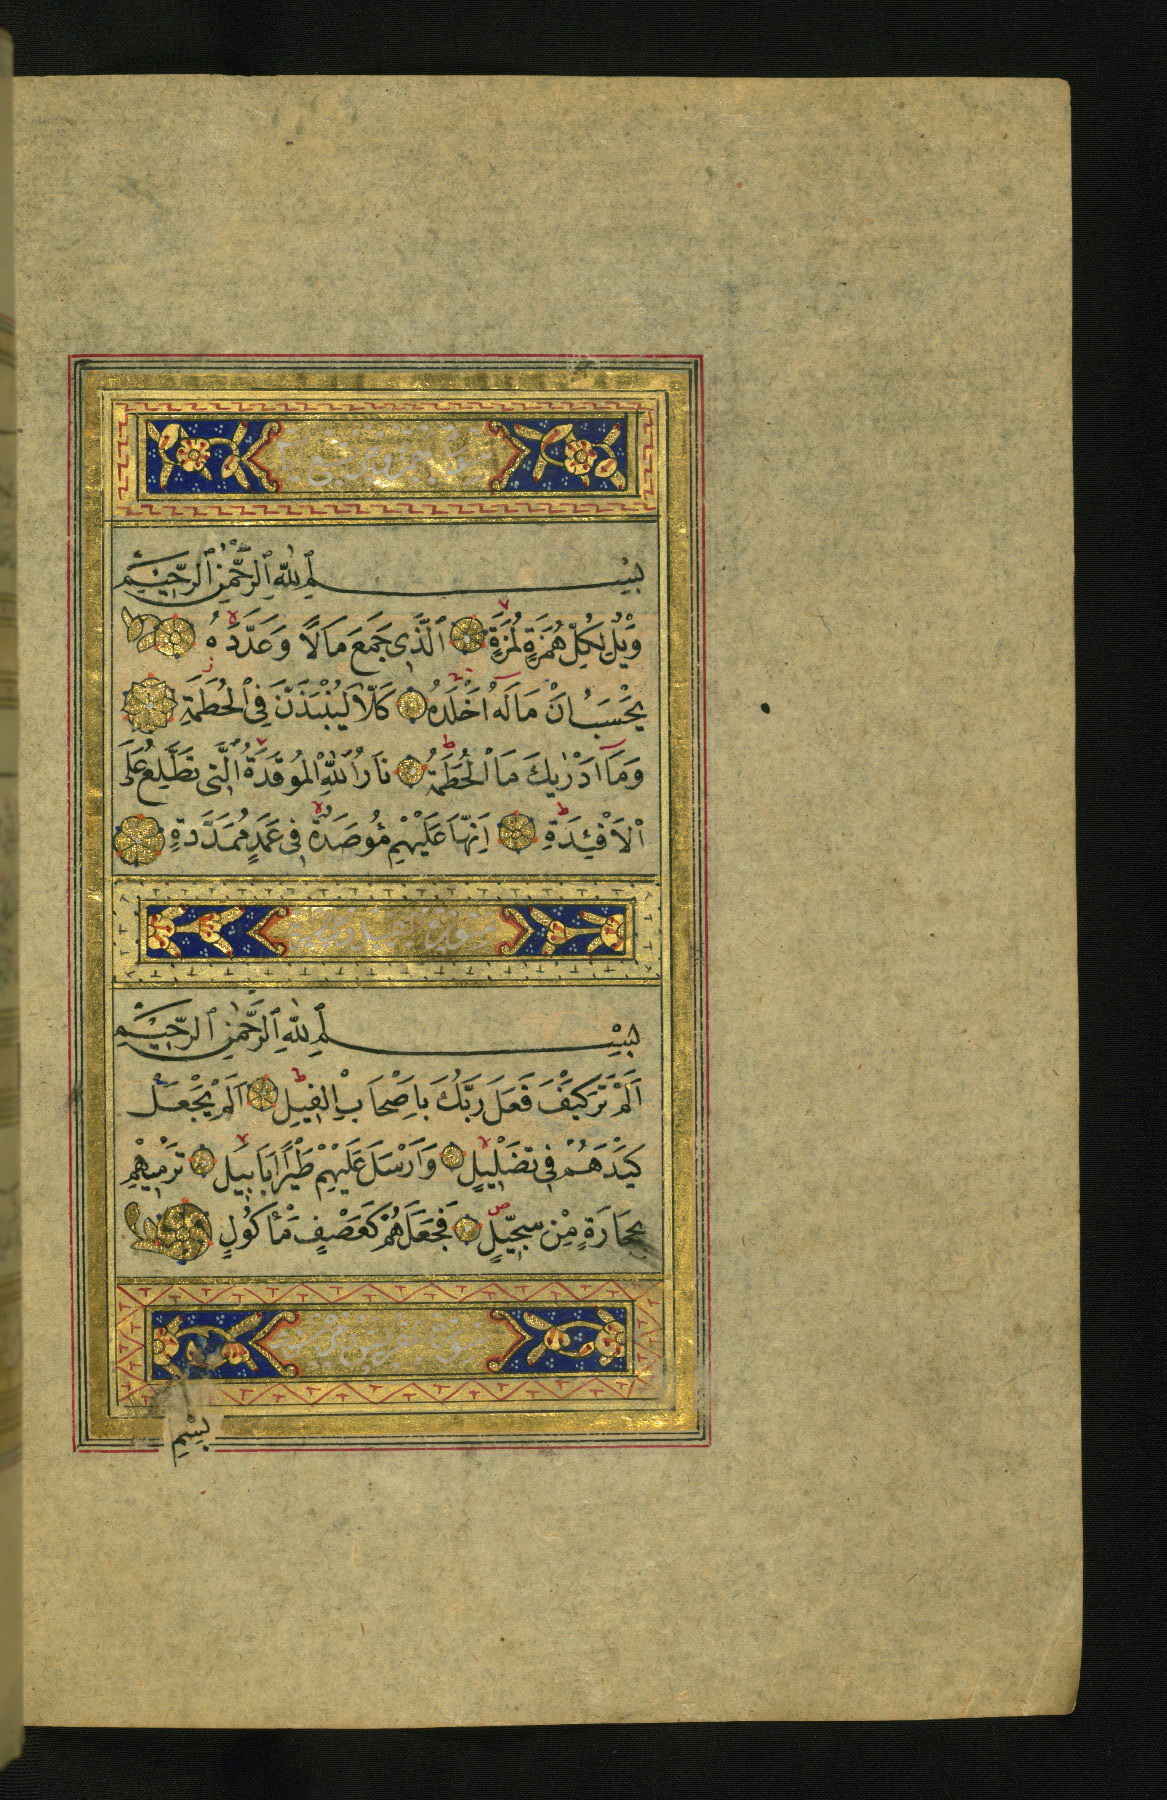 بِسْمِ اللهِ الرَّحْمٰنِ الرَّحِيْمِ
وَيْلٌ لِكُلِّ هُمَزَةٍ لُمَزَةٍ اَلَّذِى جَمَعَ مَالًا وَعَدَّدَهُ
يَحْسَبُ اَنَّ مَالَهُ اَخْلَدَهُ كَلَّا لَيُنْبَذَنَّ فِى الْحُطَمَةِ
وَمَا اَدْرٰيكَ مَا الْحُطَمَةُ نَارُ اللهِ الْمُوقَدَةُ الَّتِى تَطَّلِعُ عَلَى
الْاَفْئِدَةِ اِنَّهَا عَلَيْهِمْ مُؤْصَدَةٌ فِى عَمَدٍ مُمَدَّدَةٍ
بِسْمِ اللهِ الرَّحْمٰنِ الرَّحِيْمِ
اَلَمْ تَرَ كَيْفَ فَعَلَ رَبُّكَ بِاَصْحَابِ الْفِيلِ اَلَمْ يَجْعَلْ
كَيْدَهُمْ فِى تَضْلِيلٍ وَاَرْسَلَ عَلَيْهِمْ طَيْرًا اَبَابِيلَ تَرْمِيهِمْ
بِحِجَارَةٍ مِنْ سِجِّيلٍ فَجَعَلَهُمْ كَعَصْفٍ مَأْكُولٍ
بِسْمِ